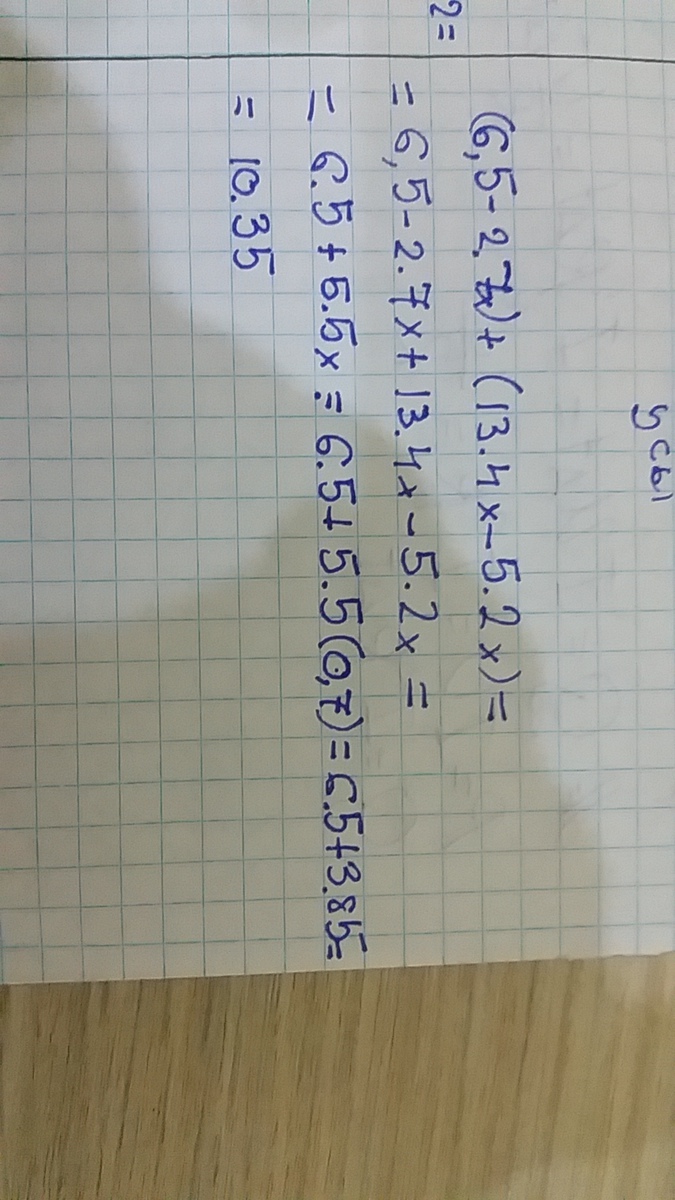 усы
2=
(6,5-2,7x)+(13.4x-5.2x)=
=6,5-2.7x+13.4x-5.2x=
=6.5+5.5x=6.5+5.5(0,7)=6.5+3.85=
=10.35